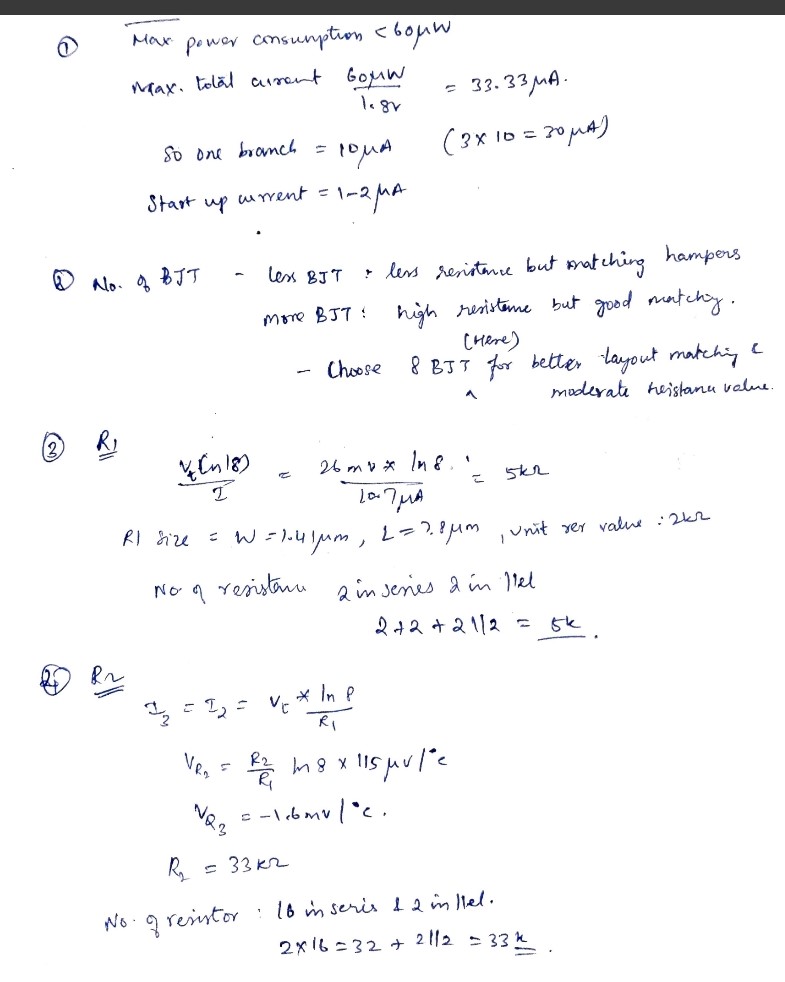 ① Max power consumption < 60μW
Max. total current 60μW / 1.8v = 33.33μA.
So one branch = 10μA (3 x 10 = 30μA)
Start up current = 1-2μA
② No. of BJT - less BJT : less resistance but matching hampers
more BJT : high resistance but good matchg.
(Here)
- Choose 8 BJT for better layout matching &
moderate resistance value.
③ R1
Vt ln(8) / I = 26mv x ln 8 / 10.7μA = 5kΩ
R1 size = W = 1.41μm, L = 7.8μm, unit res value : 2kΩ
No of resistance 2 in series 2 in llel
2+2+2||2 = 5k.
④ R2
I3 = I2 = Vt * ln 8 / R1
VR2 = R2/R1 ln 8 x 115μv/°c
VQ3 = -1.6mv/°c.
R2 = 33kΩ
No. of resistor : 16 in seris & 2 in llel.
2x16 = 32 + 2||2 = 33k.